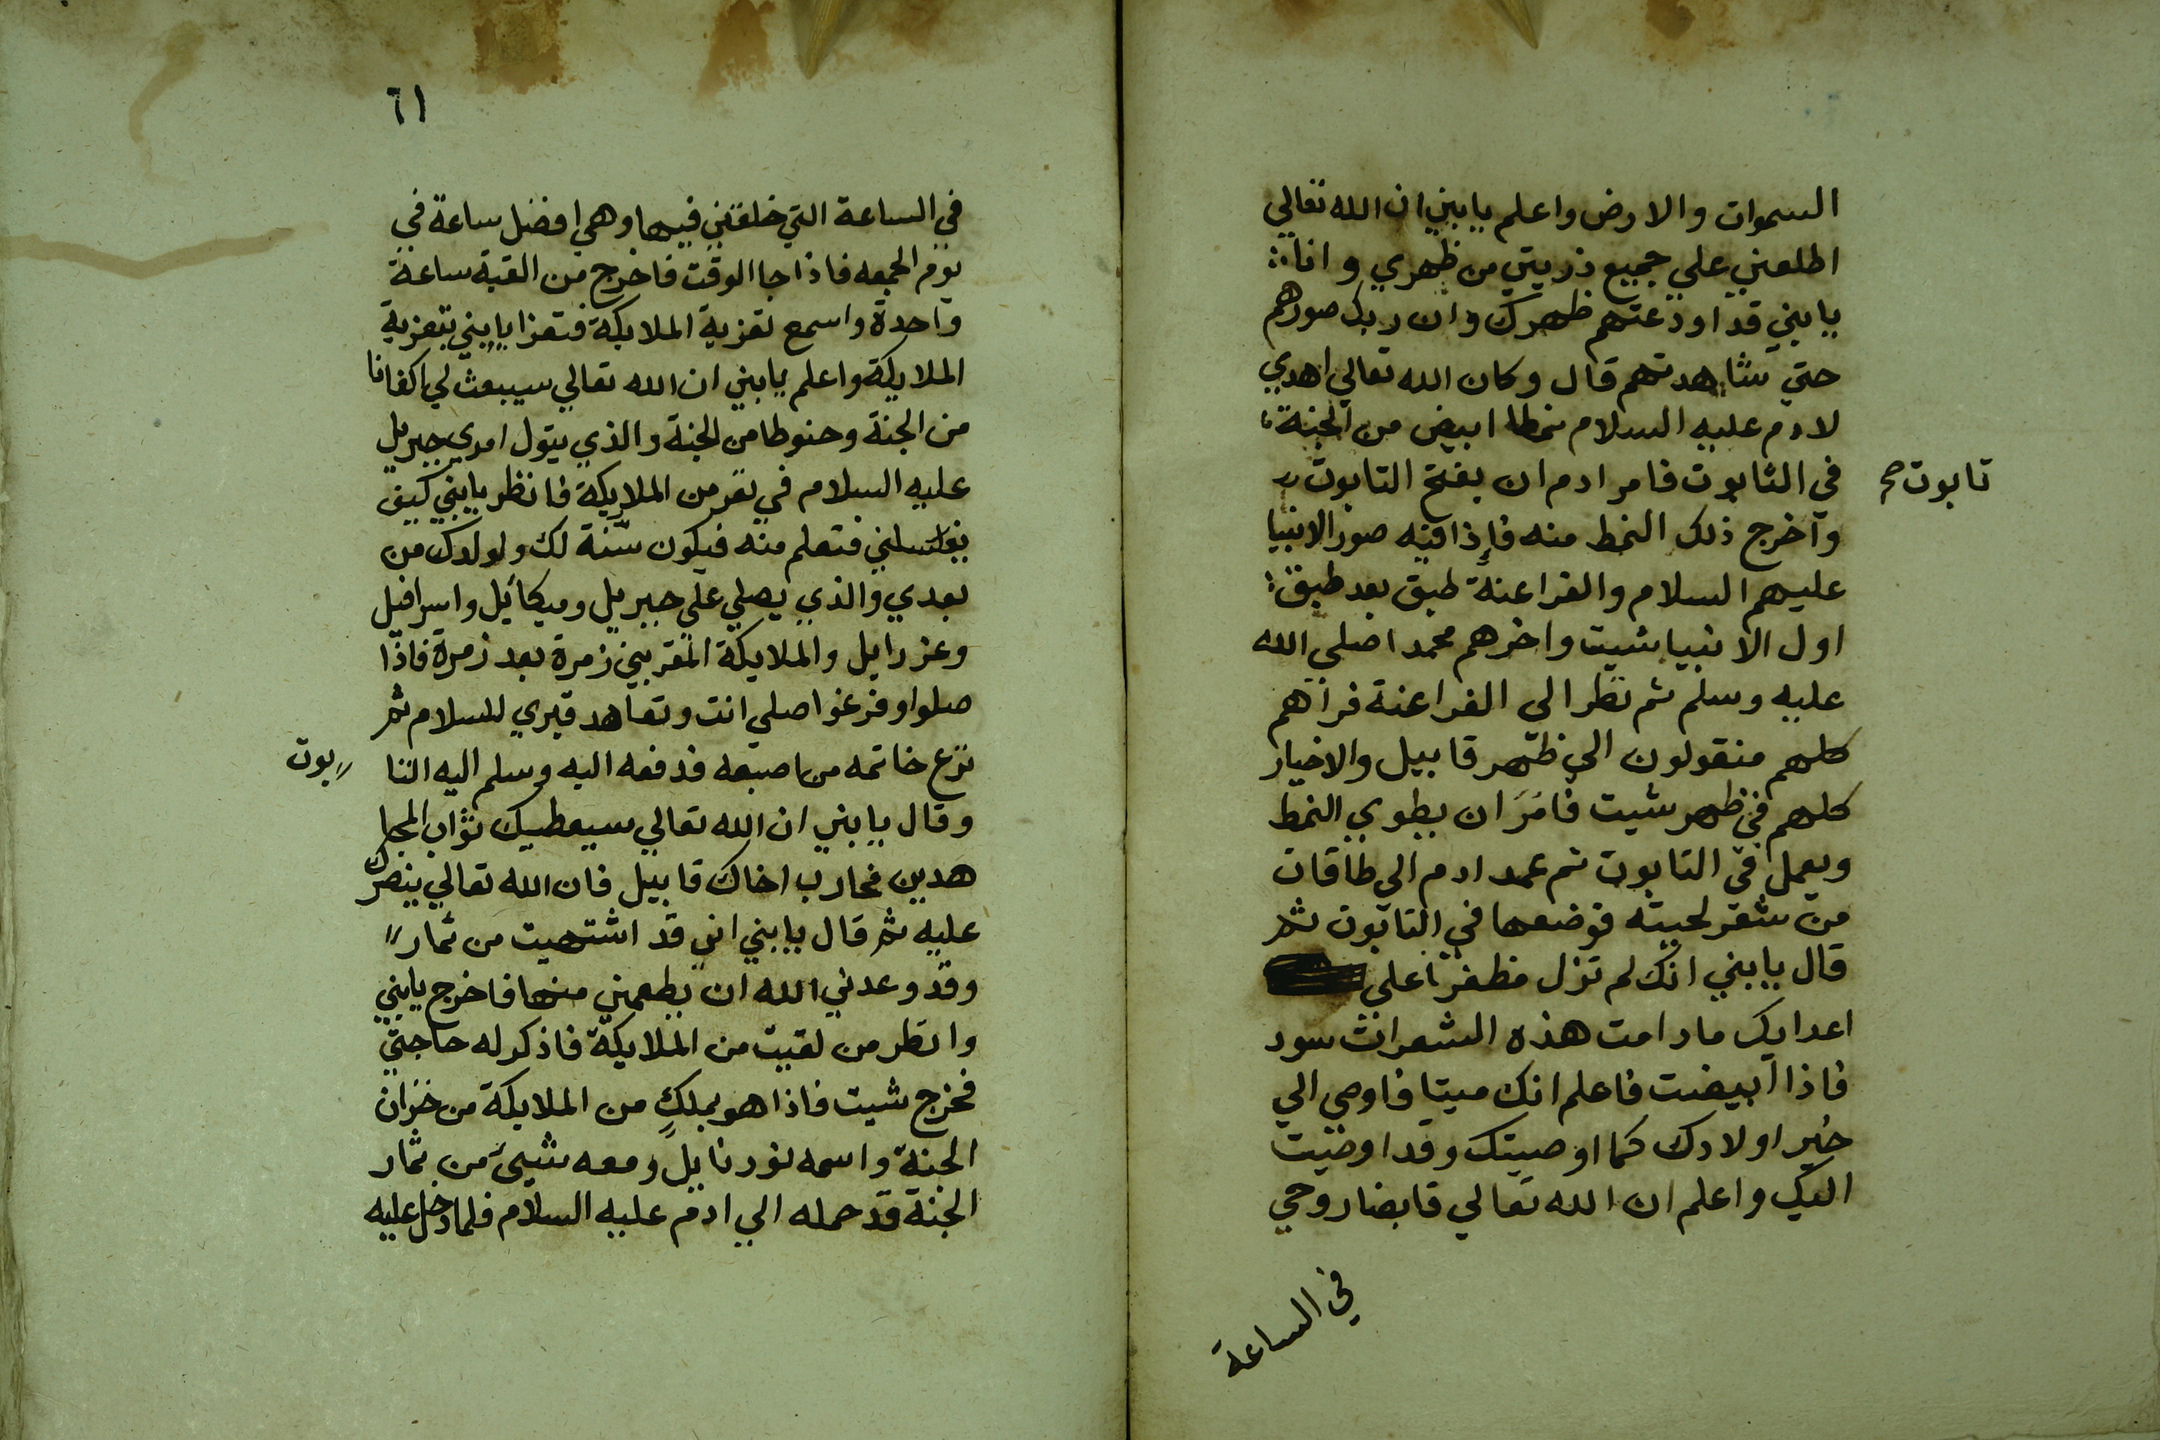 السموات والارض واعلم يابني ان الله تعالي
اطلعني علي جميع ذريتي من ظهري وانا
يابني قد اودعتهم ظهرك وان ربك صورهم
حتي شاهدتهم قال وكان الله تعالي اهدي
لادم عليه السلام نمطا ابيض من الجنة
في التابوت فامر ادم ان يفتح التابوت
تابوت صح
واخرج ذلك النمط منه فإذا فيه صور الانبيا
عليهم السلام والفراعنة طبق بعد طبق
اول الانبيا شيت واخرهم محمد اصلي الله
عليه وسلم ثم نظر الى الفراعنة فراهم
كلهم منقولون الي ظهر قابيل والاخيار
كلهم في ظهر شيت فامَرَ ان يطوي النمط
ويعمل في التابوت ثم عمد ادم الي طاقات
من شعر لحيته فوضعها في التابوت ثم
قال يابني انك لم تزل مظفرا علي
اعدايك مادامت هذه الشعرات سود
فاذا ابيضت فاعلم انك ميتا فاوصي الي
خير اولادك كما اوصيتك وقد اوصيت
اليك واعلم ان الله تعالي قابضا روحي
في الساعة
٦١
في الساعة التي خلقني فيها وهي افضل ساعة في
يوم الجمعه فاذا جا الوقت فاخرج من القبة ساعة
واحدة واسمع تعزية الملايكة فتعزا يابني بتعزية
الملايكة واعلم يابني ان الله تعالي سيبعث لي اكفانا
من الجنة وحنوطا من الجنة والذي يتول امري جبريل
عليه السلام في نفر من الملايكة فانظر يابني كيف
يغسلني فتعلم منه فيكون سنة لك ولولدك من
بعدي والذي يصلي علي جبريل وميكائيل واسرافيل
وعزرايل والملايكة المقربين زمرة بعد زمرة فاذا
صلوا وفرغوا صلي انت وتعاهد قبري للسلام ثم
نزع خاتمه من اصبعه فدفعه اليه وسلم اليه التا
بوت
وقال يابني ان الله تعالي سيعطيك ثواب المجا
هدين فحارب اخاك قابيل فان الله تعالي ينصرك
عليه ثم قال يابني اني قد اشتهيت من ثمار
وقد وعدني الله ان يطعمني منها فاخرج يابني
وانظر من لقيت من الملايكة فاذكر له حاجتي
فخرج شيت فاذا هو بملكٍ من الملايكة من خزان
الجنة واسمه نورنايل ومعه شيئ من ثمار
الجنة قد حمله الي ادم عليه السلام فلما دخل عليه